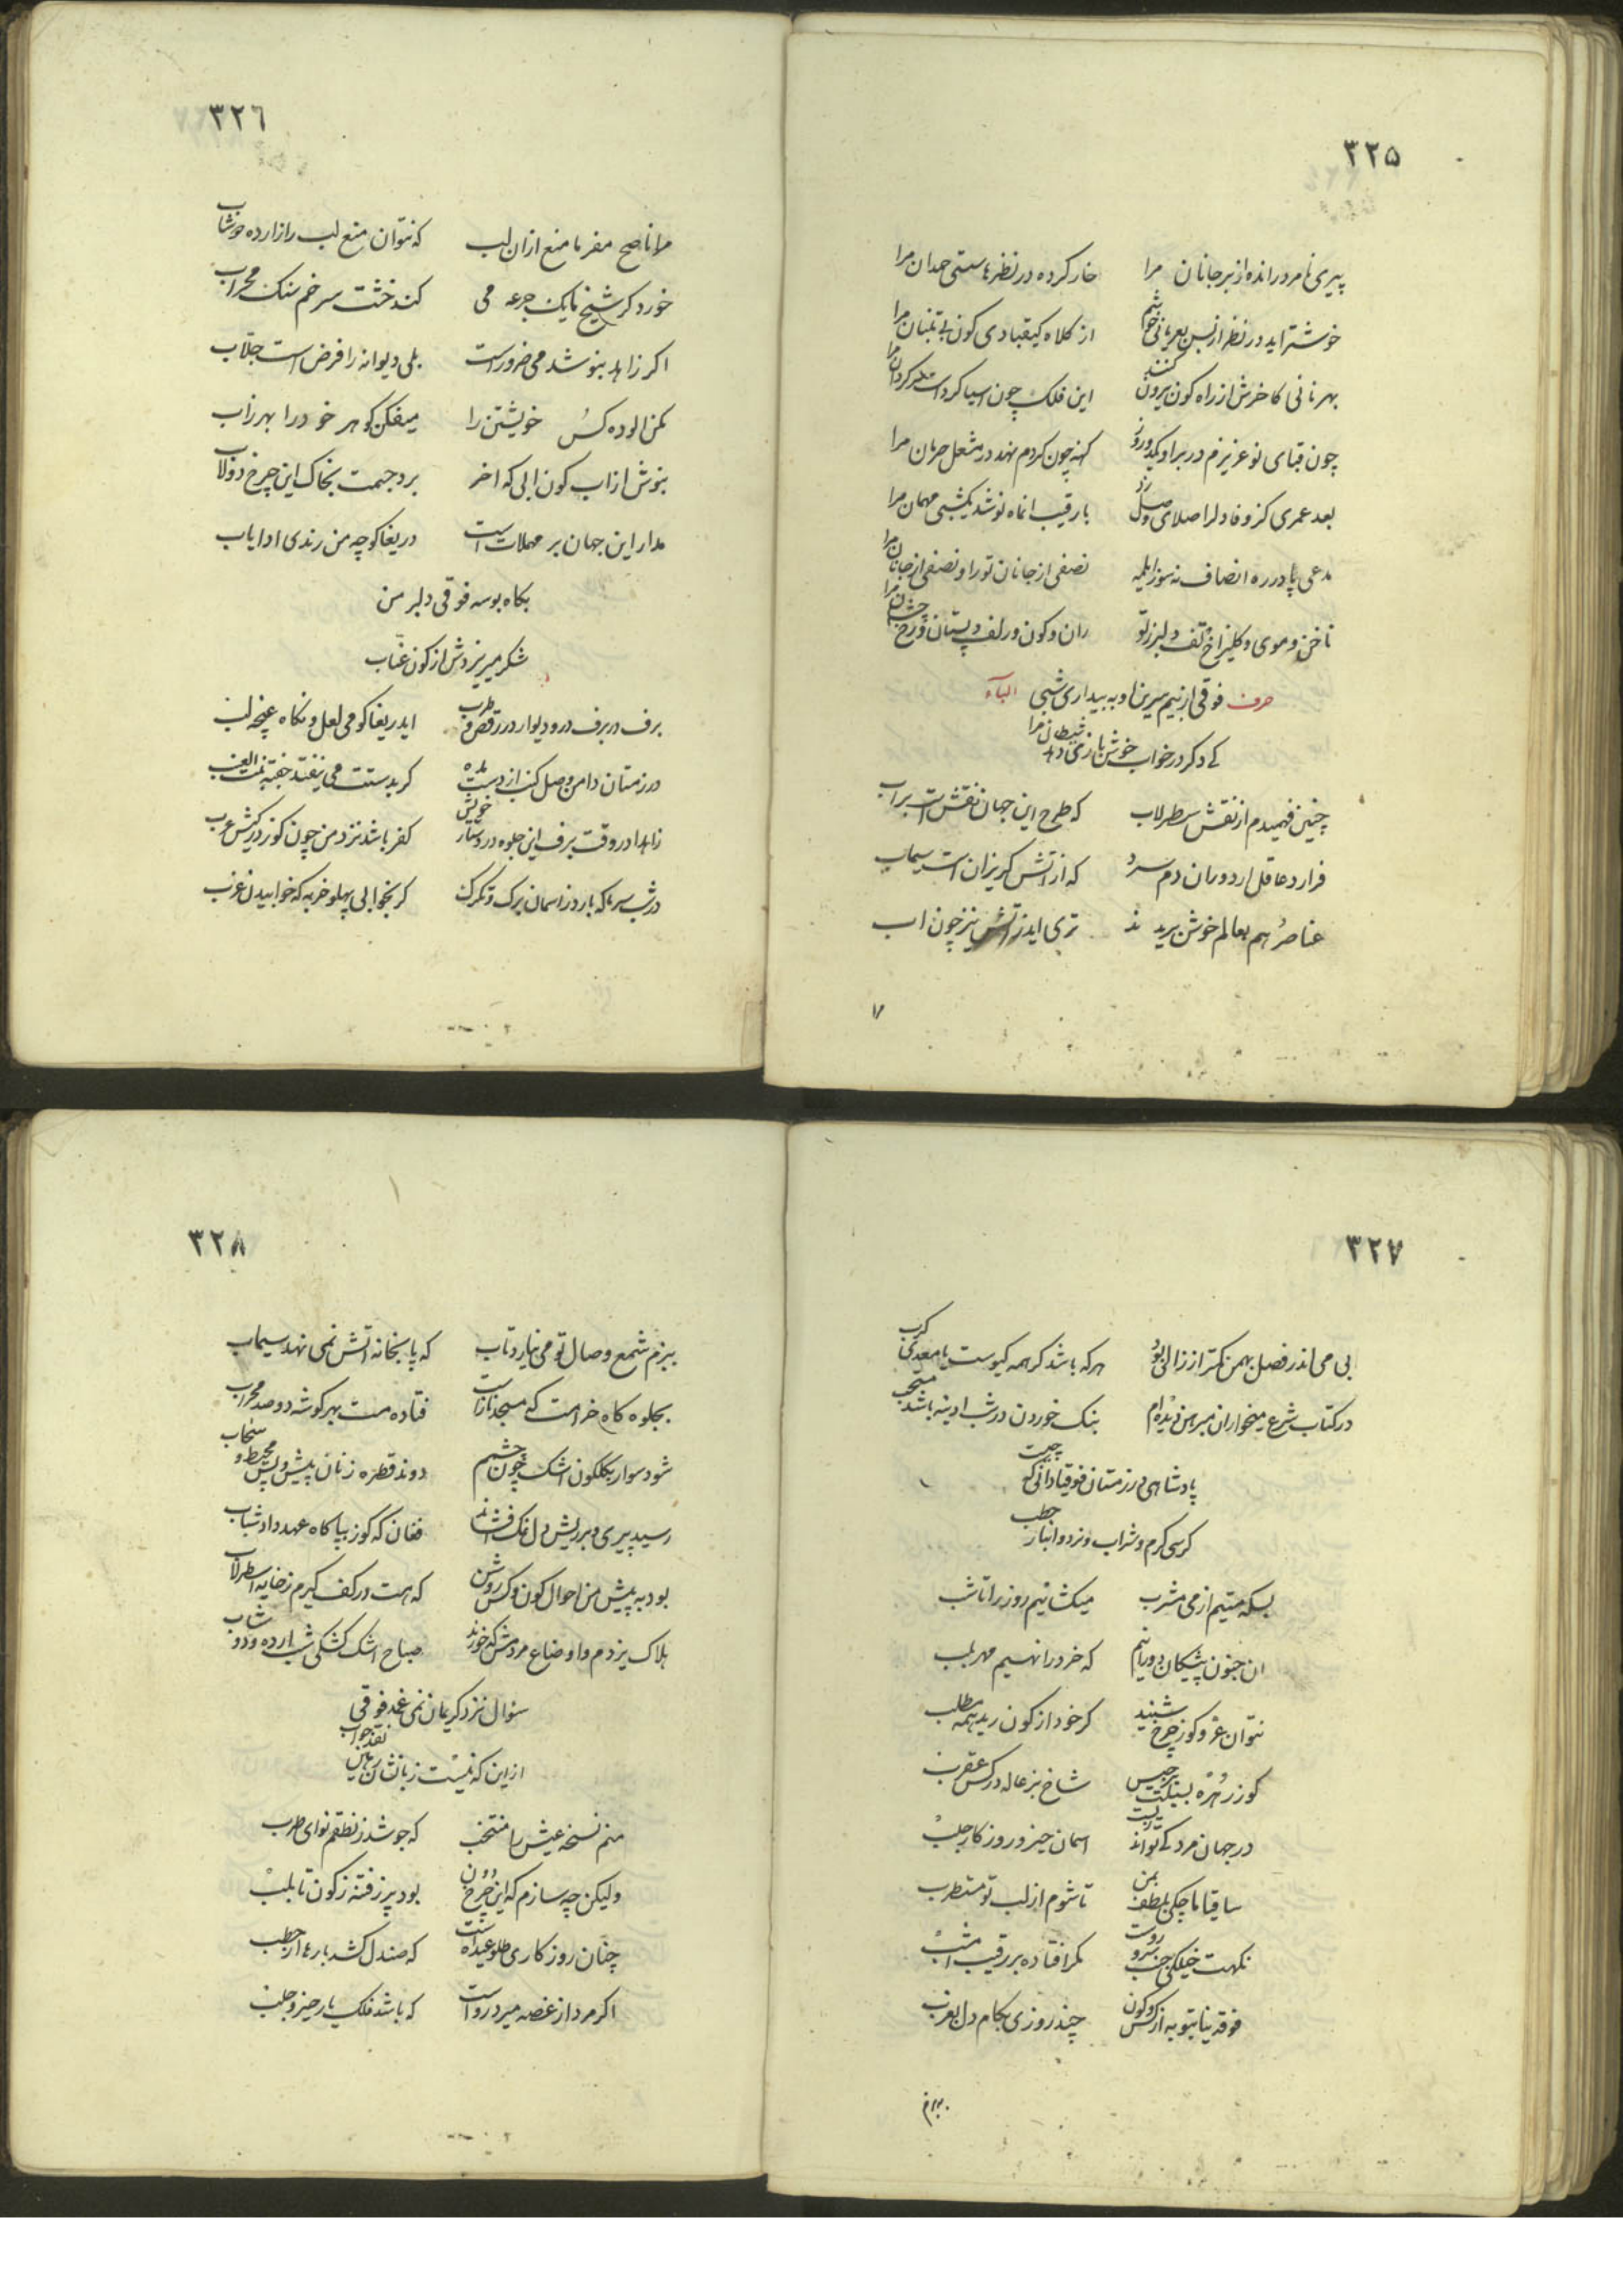 ۳۲۵
پیری نامرد رانده از بر جانان مرا    خار کرده در نظرها سستی همدان مرا
خوشتر اید در نظر از بس بعریانی خوشم    از کلاه کیقبادی کون بی تنبان مرا
بهر نانی کاخرش از راه کون بیرون کنند    این فلک چون اسیا کرد است سر کردان مرا
چون قبای نو عزیزم در بر او یکدو روز    کهنه چون کردم نهد در مشعل حرمان مرا
بعد عمری کز وفا دلرا صلای وصل زد    با رقیب انماه نو شد یکشبی مهمان مرا
مدعی پا در ره انصاف نه    نصفی از جانان تو را و نصفی از جانان مرا
ناخن و موی و تف دلبر ز تو    ران و کون و زلف و پستان و رخ چشمان مرا
حرف فوقی از نیم سیرین او به بیداری شبی الباء
کی دکر در خواب خوش بازی دهد شیطان مرا
چنین فهمیدم از نقش سطرلاب    که طرح این جهان نقش است بر اب
فرارد عاقل از دونان دم سرد    که از اتش کریزان است سیماب
عناصر هم بعالم خوش نریدند    تری اید ز اتش نیز چون اب
۳۲۶
مرا ناصح مفرما منع از ان لب    که نتوان منع لب را از ارده دوشاب
خورد کر شیخ ما یک جرعه می    کند خشت سر خم سنک محراب
اکر زاهد بنوشد می ضرور است    بلی دیوانه را فرض است جلاب
مکن الوده کس خویشتن را    میفکن کوهر خود را بهر زاب
بنوش از اب کون ابی که اخر    برد جسمت بخاک این چرخ دولاب
مدار این جهان بر مهملات است    دریغا کو چه من رندی ادا یاب
بکاه بوسه فوقی دلبر من
شکر میریزدش از کون عناب
برف در برف در و دیوار در رقص و طرب    ایدریغا کو می لعل و نکاه غنچه لب
در زمستان دامن وصل کنب از دست مده    کر بدستت می نیفتد جفته بنت العنب
زاهدا در وقت برف این جلوه در دستار خویش    کفر باشد نزد من چون کوز در کیش عرب
در شب سرما که بارد ز اسمان برک و تکرک    کر بخوابی پهلو خر به که خوابیدن عزب
۳۲۷
بی می اندر فصل بهمن کمتر از زالی بود    هر که باشد کر همه کیوست یا معدی کرب
در کتاب شرع میخواران مبرهن دیده ام    بنک خوردن در شب ادینه باشد مستحب
پادشاهی در زمستان فوقیا دانی که چیست
کرسی کرم و شراب و نرد و انبار حطب
بسکه مستیم از می مشرب    میکشانیم روز را تا شب
ان جنون پیشکان دورانیم    که خرد را نهیم مهر بلب
نتوان عر و کوز چرخ شنید    کر خود از کون رید همه مطلب
کوز زهره بسبلت برجیس    شاخ بزغاله در کس عقرب
در جهان مرد کی تواند زیست    اسمان حیز و روزکار جلب
ساقیا ماچکی بلطف بمن    تا شوم از لب تو مستطرب
نکهت خیلکی جنب شد و رفت    مکر افتاده بر رقیب امشب
فوقدینا بتوبه از کس و کون    چند روزی بکام دل بعزب
۳۲۸
ببزم شمع وصال تو می نیارد تاب    که پا بخانه اتش نمی نهد سیماب
بجلوه کاه خرامت که مسجد ناز است    فتاده مست بهر کوشه دو صد محراب
شود سوار بکلکون اشک چون چشمم    دوند قطره زنان پیش و پس محیط و سحاب
رسید پیری و بر ریش دل نمک افشاند    فغان که کوز بپا کاه عهد داد شباب
بود به پیش من احوال کون و کس روشن    که هست در کف کیرم ز خایه اسطرلاب
هلاک یزدم و اوضاع مردمش که خورند    صباح اشک کشکی شب ارده و دوشاب
سئوال نزد کریمان نمی غد فوقی
از این که نیست زبانشان رهین نقد جواب
منم نسخه عیش را منتخب    که جوشد ز نطقم نوای طرب
ولیکن چه سازم که این چرخ دون    بود پر ز فتنه ز کون تا بلب
چنان روزکاری    که صندل کشد بارها از حطب
اکر مرد از غصه میرد رواست    که باشد فلک یار حیز و جلب